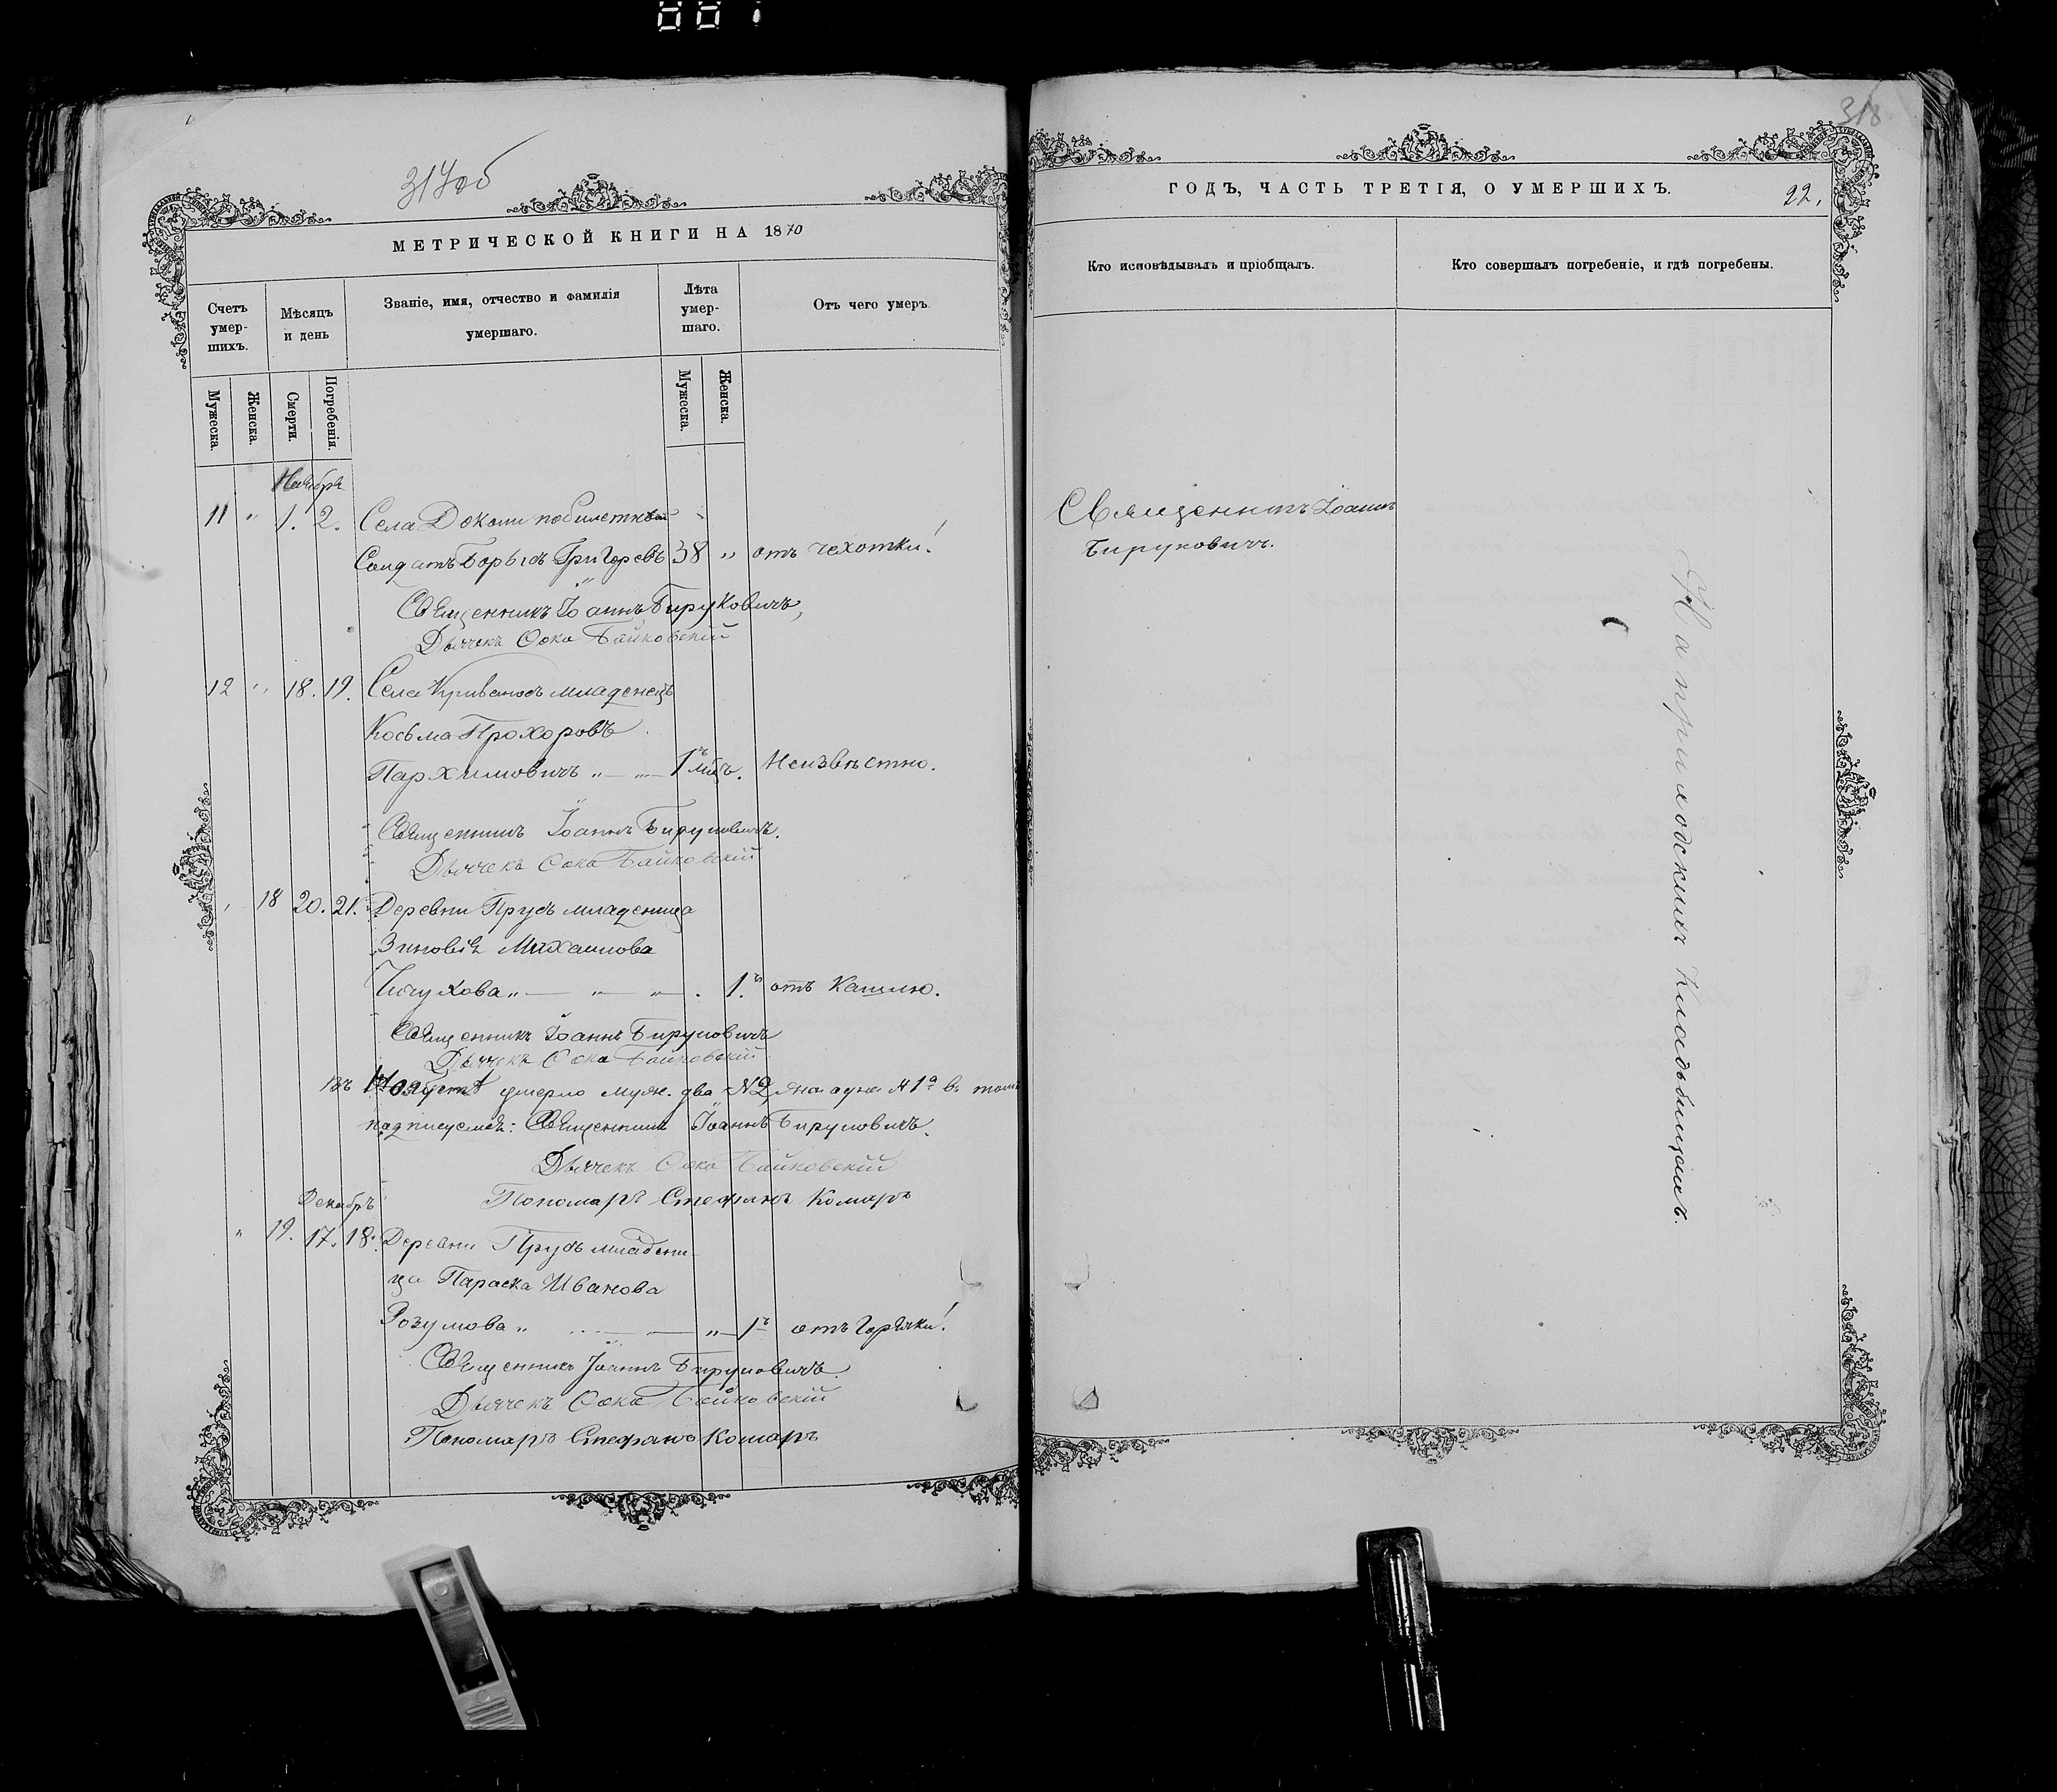 001
317об
МЕТРИЧЕСКОЙ КНИГИ НА 1870
Счетъ умер-шихъ.
Мѣсяцъ и день
Званіе, имя, отчество и фамилія умершаго.
Лѣта умер-шаго.
Отъ чего умеръ.
Мужеска.
Женска.
Смерти.
Погребенія.
Мужеска.
Женска.
Ноябрь
11 " 1. 2. Села Докони побилетный
Солдатъ Борысъ Григоревъ 38 " отъ чехотки!
Священникъ Іоаннъ Бируковичъ,
Дьячекъ Фока Байковскій
12 " 18. 19. Села младенецъ
Косьма Прохоровъ
Пархимовичъ " — " — 1 мѣц. Неизвѣстно.
Священникъ Іоаннъ Бируковичъ.
Дьячекъ Фока Байковскій
" 18 20. 21. Деревни Прусъ младеница
Зиновія Михаилова
" — " — " . 1. отъ Кашлю.
Священникъ Іоаннъ Бируковичъ
Дьячекъ Фока Байковскій
Въ умерло муж. два №2, одна №1а въ томъ
подписуемся: Священникъ Іоаннъ Бируковичъ.
Дьячекъ Фока Байковскій
Пономаръ Стефанъ Комаръ
Декабрь
" 19. 17. 18. Деревни Прусъ младени-
ца Параска Иванова
Розумова " — — " — 1 отъ Горячки!
Священникъ Іоаннъ Бируковичъ.
Дьячекъ Фока Байковскій
Пономаръ Стефанъ Комаръ
318
ГОДЪ, ЧАСТЬ ТРЕТІЯ, О УМЕРШИХЪ.
22.
Кто исповѣдывалъ и пріобщалъ.
Кто совершалъ погребеніе, и гдѣ погребены.
Священникъ Іоаннъ
Бируковичъ.
На приходскихъ Кладбищахъ.